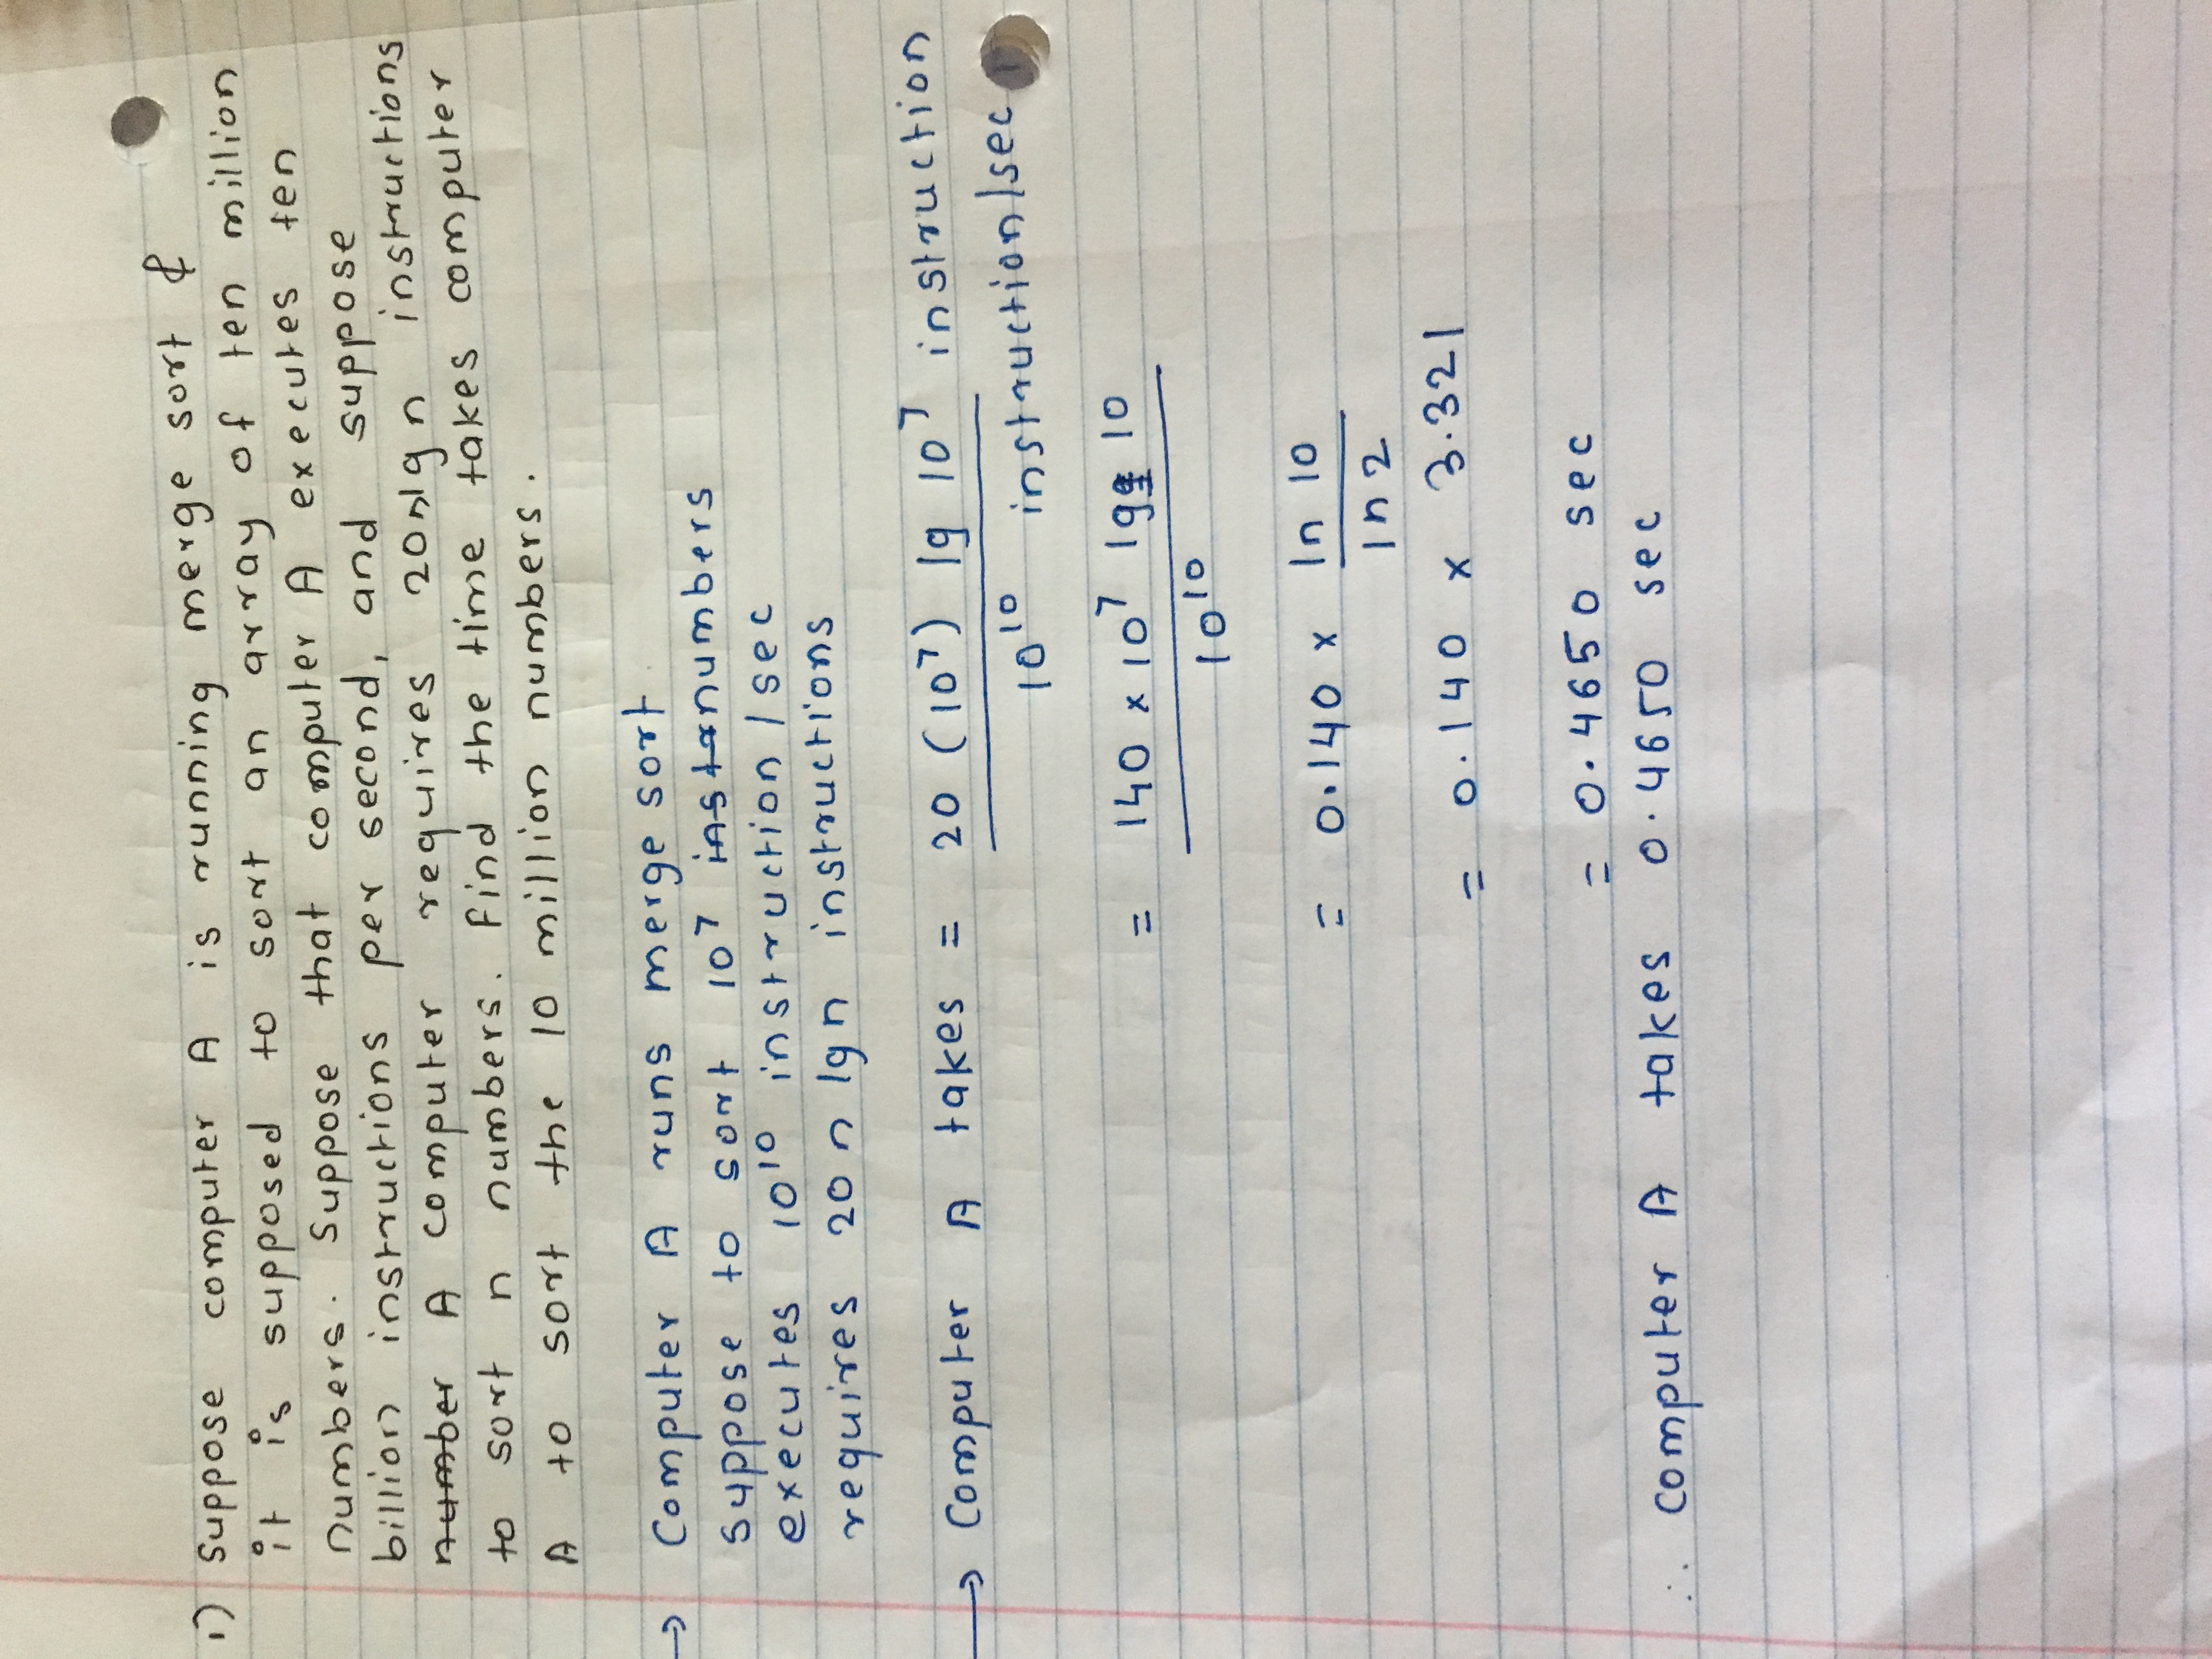 1) Suppose computer A is running merge sort &
it is supposed to sort an array of ten million
numbers. Suppose that computer A executes ten
billion instructions per second, and suppose
number A computer requires 20nlgn instructions
to sort n numbers. Find the time takes computer
A to sort the 10 million numbers.
→ Computer A runs merge sort
suppose to sort 10⁷ instr numbers
executes 10¹⁰ instruction / sec
requires 20 n lgn instructions
→ Computer A takes = 20 (10⁷) lg 10⁷ instruction
10¹⁰ instruction/sec
= 140 × 10⁷ lg 10
10¹⁰
= 0.140 × ln 10
ln 2
= 0.140 × 3.321
= 0.4650 sec
∴ computer A takes 0.4650 sec